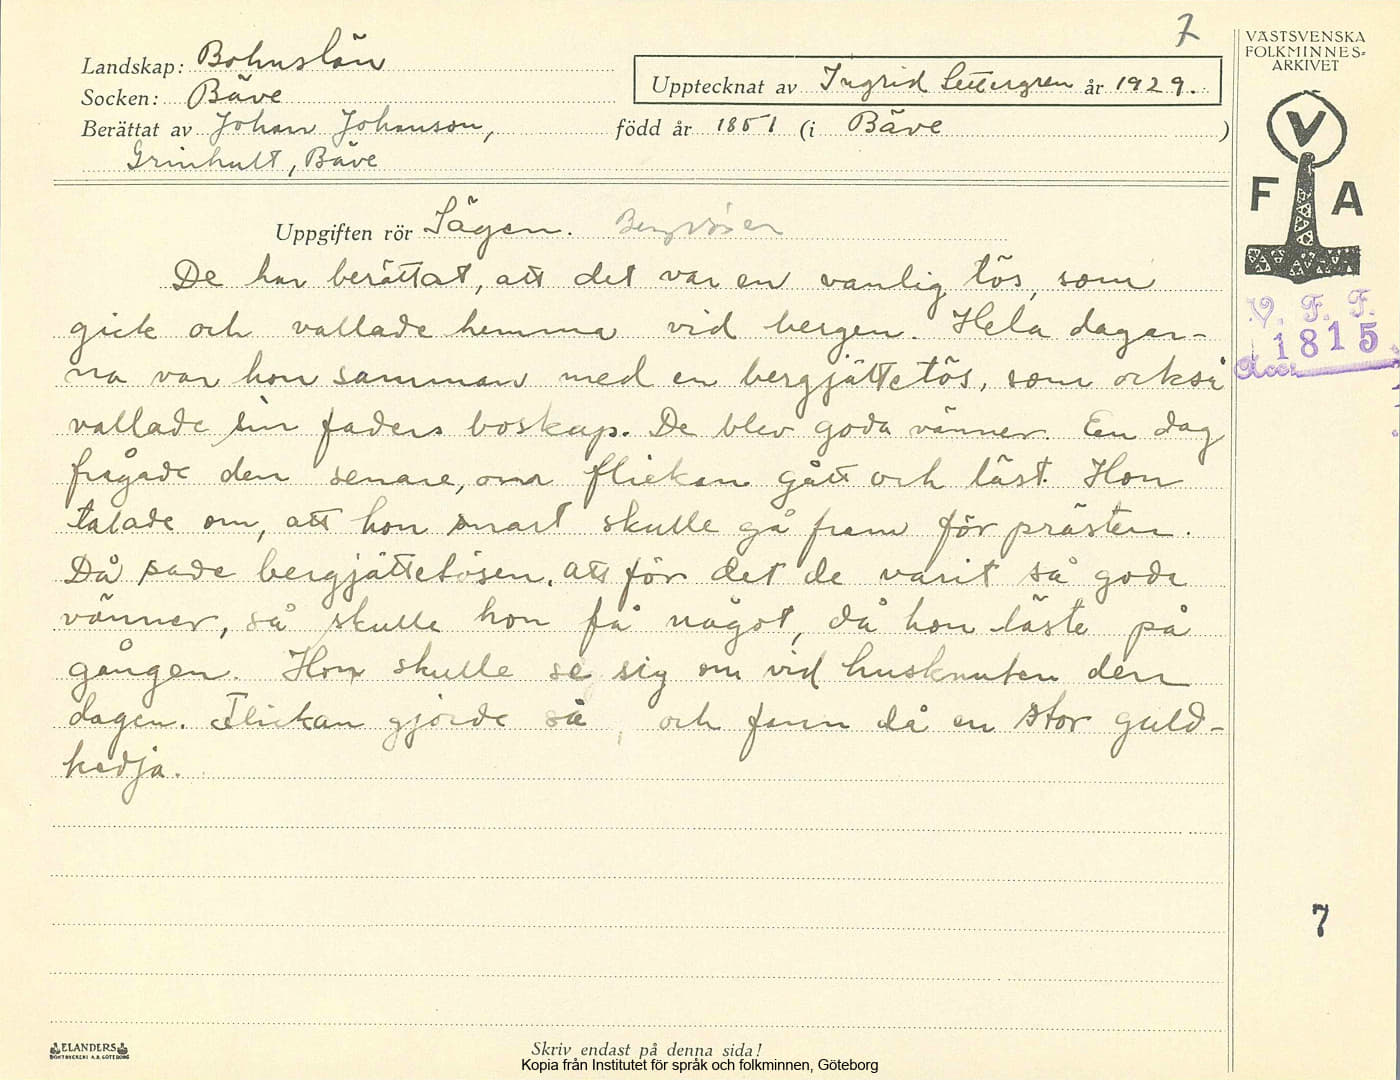 7
VÄSTSVENSKA
FOLKMINNES-
ARKIVET
Landskap: Bohuslän
Upptecknat av Ingrid Settergren år 1929.
Socken: Bäve
Berättat av Johan Johanson, född år 1851 (i Bäve )
Grinhult, Bäve
V
F A
Uppgiften rör Sägen. Bergväsen
De har berättat, att det var en vanlig tös, som
gick och vallade hemma vid bergen. Hela dagar-
na var hon samman med en bergjättetös, som också
vallade sin faders boskap. De blev goda vänner. En dag
frågade den senare, om flickan gått och läst. Hon
talade om, att hon snart skulle gå fram för prästen.
Då sade bergjättetösen, att för det de varit så goda
vänner, så skulle hon få något, då hon läste på
gången. Hon skulle se sig om vid husknuten den
dagen. Flickan gjorde så, och fann då en stor guld-
kedja.
V. F. F.
1815
Acc.
7
ELANDERS
BOKTRYCKERI A.B. GÖTEBORG
Skriv endast på denna sida!
Kopia från Institutet för språk och folkminnen, Göteborg